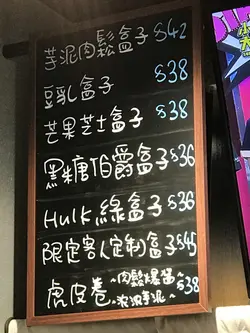 芋泥肉鬆盒子 $42
豆乳盒子 $38
芒果芝士盒子 $38
黑糖伯爵盒子 $36
Hulk綠盒子 $36
限定客人定制盒子 $45
虎皮卷 ~肉鬆爆醬~ $38
~浓浓芋泥~